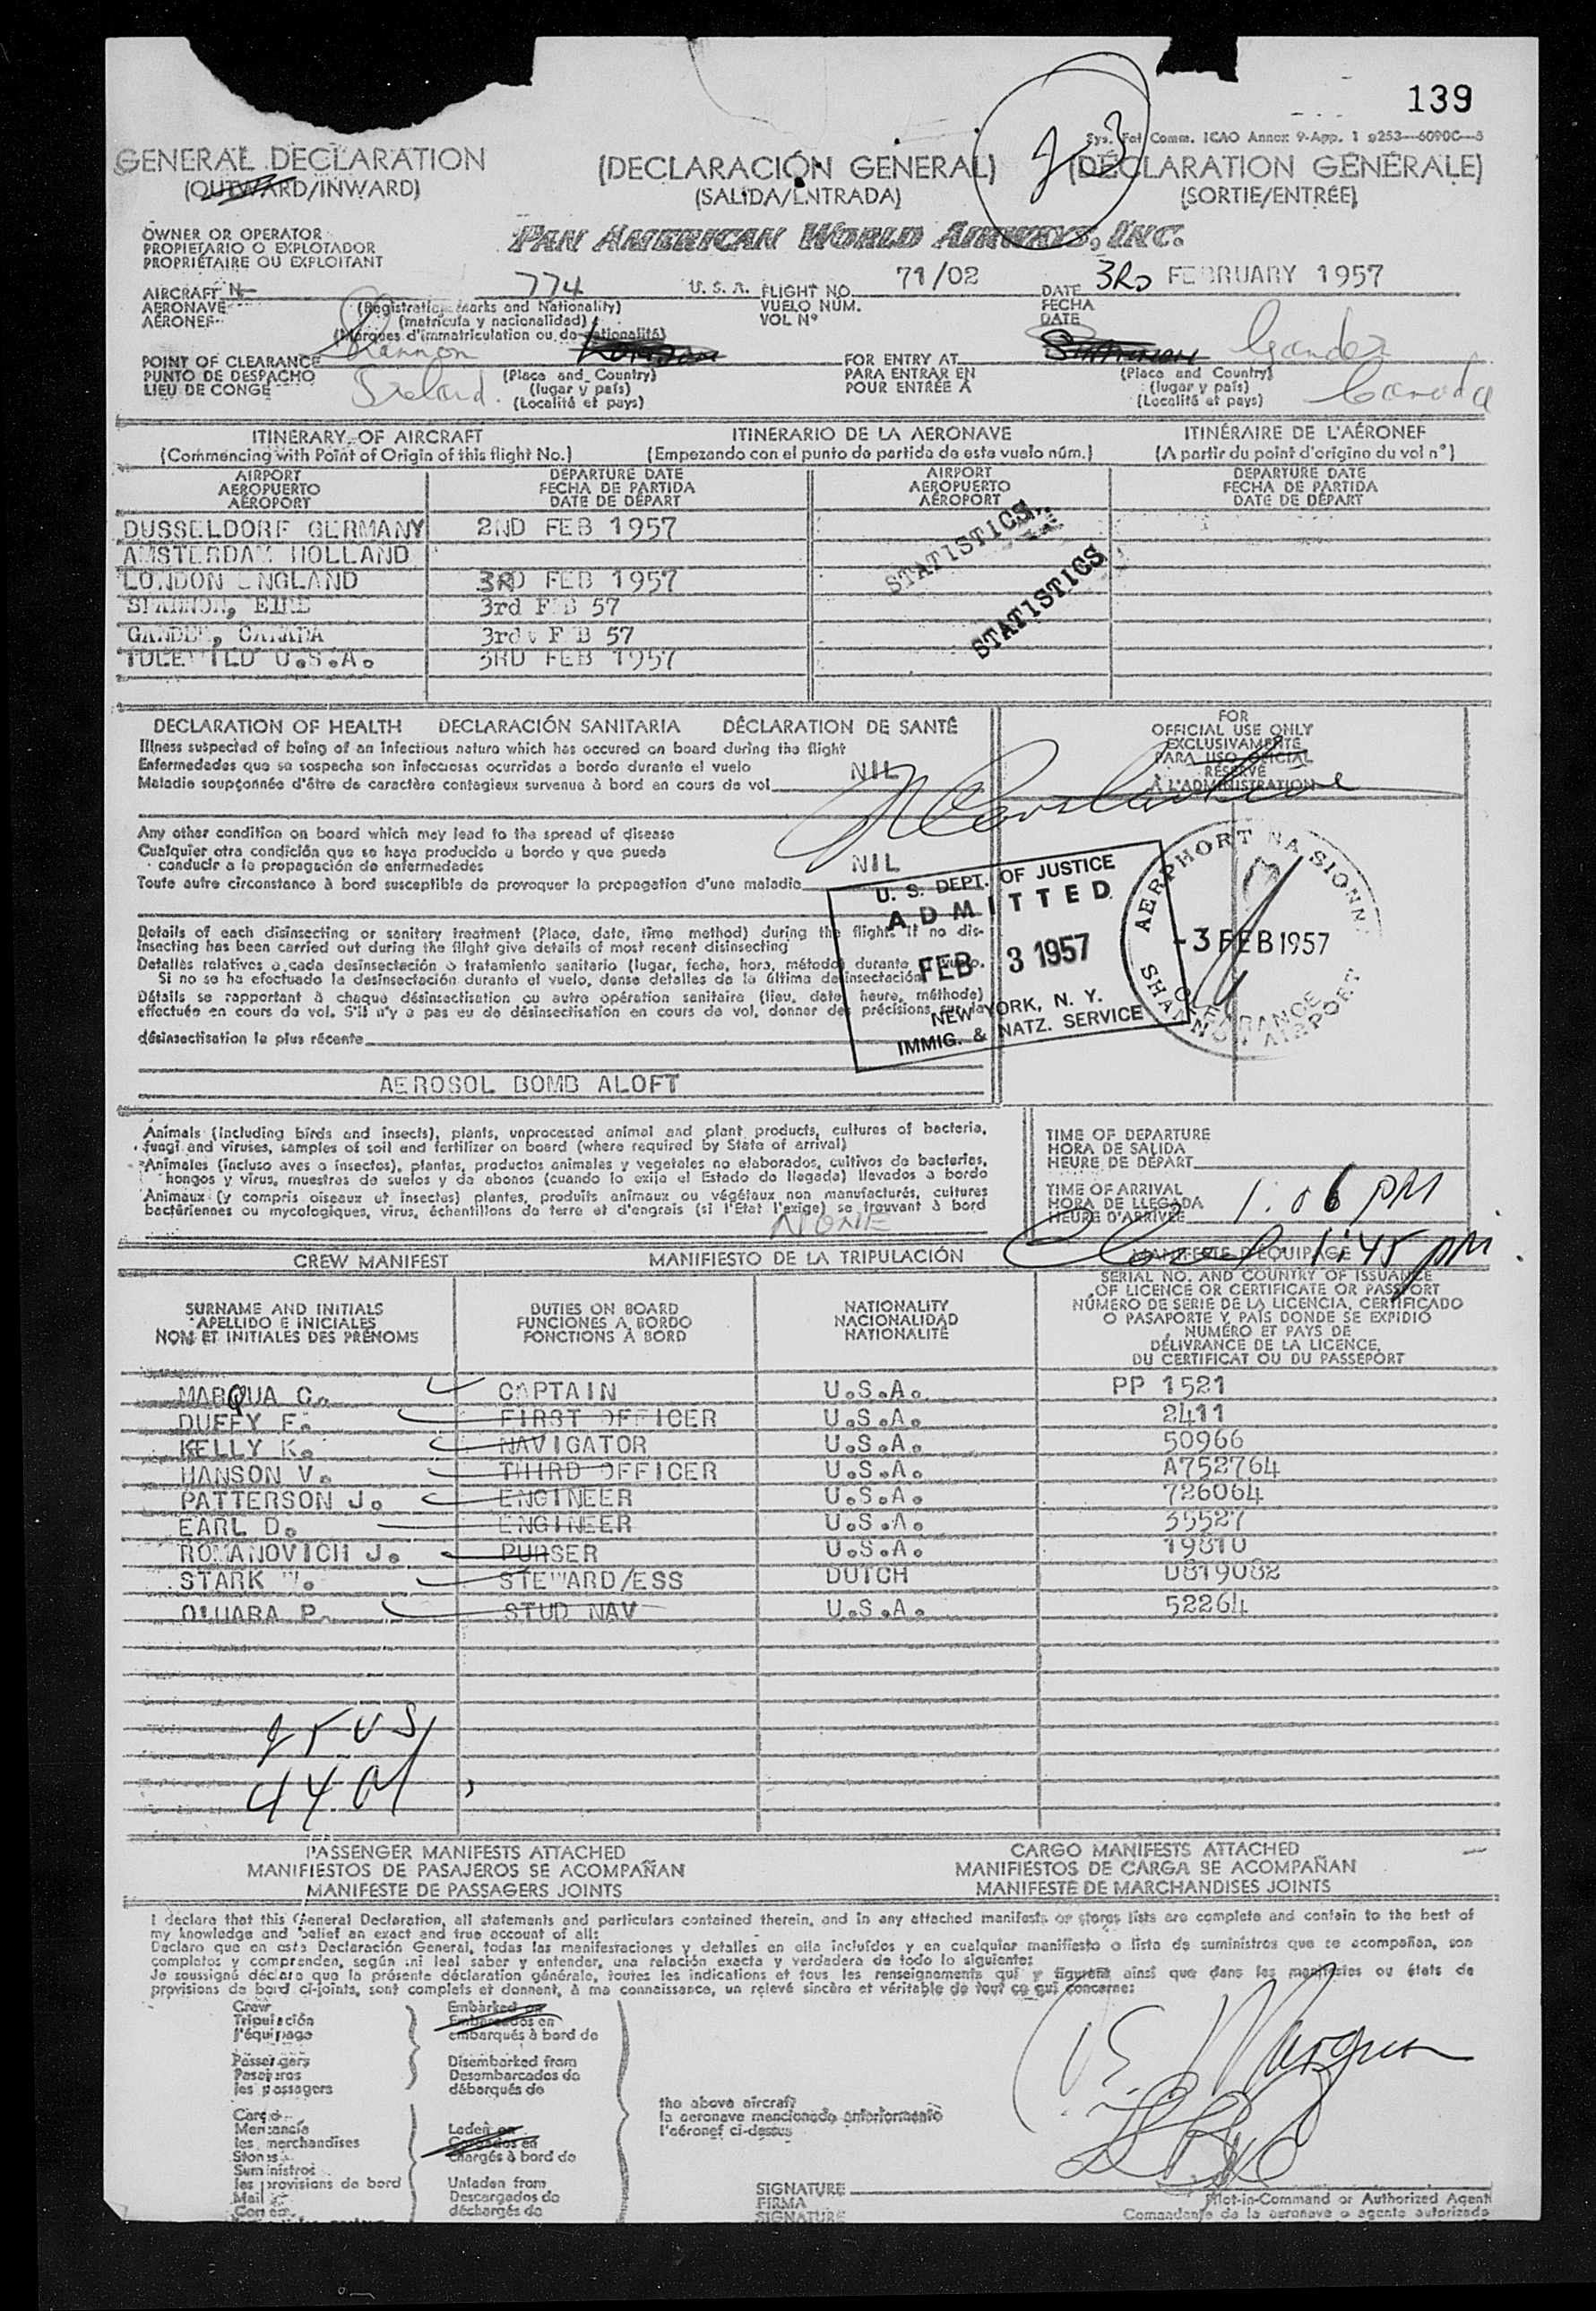 139
Sys. Fol Comm. ICAO Annex 9-App. 1
GENERAL DECLARATION (DECLARACIÓN GENERAL) (DÉCLARATION GÉNÉRALE)
(OUTWARD/INWARD) (SALIDA/ENTRADA) (SORTIE/ENTRÉE)
OWNER OR OPERATOR
PROPIETARIO O EXPLOTADOR
PROPRIÉTAIRE OU EXPLOITANT
PAN AMERICAN WORLD AIRWAYS, INC.
AIRCRAFT N 774 U.S.A. FLIGHT NO. 71/02 DATE 3RD FEBRUARY 1957
AERONAVE (Registration marks and Nationality) VUELO NÚM. FECHA
AÉRONEF (matrícula y nacionalidad) VOL Nº DATE
(Marques d'immatriculation ou de nationalité)
POINT OF CLEARANCE Shannon London FOR ENTRY AT Shannon Gander
PUNTO DE DESPACHO (Place and Country) PARA ENTRAR EN (Place and Country)
LIEU DE CONGÉ Ireland. (lugar y país) POUR ENTRÉE À (lugar y país) Canada
(Localité et pays) (Localité et pays)
ITINERARY OF AIRCRAFT ITINERARIO DE LA AERONAVE ITINÉRAIRE DE L'AÉRONEF
(Commencing with Point of Origin of this flight No.) (Empezando con el punto de partida de este vuelo núm.) (A partir du point d'origine du vol nº)
AIRPORT DEPARTURE DATE AIRPORT DEPARTURE DATE
AEROPUERTO FECHA DE PARTIDA AEROPUERTO FECHA DE PARTIDA
AÉROPORT DATE DE DÉPART AÉROPORT DATE DE DÉPART
DUSSELDORF GERMANY 2ND FEB 1957
AMSTERDAM HOLLAND
LONDON ENGLAND 3RD FEB 1957
SHANNON, EIRE 3rd FEB 57
GANDER, CANADA 3rd FEB 57
IDLEWILD U.S.A. 3RD FEB 1957
STATISTICS
STATISTICS
DECLARATION OF HEALTH DECLARACIÓN SANITARIA DÉCLARATION DE SANTÉ
Illness suspected of being of an infectious nature which has occured on board during the flight
Enfermedades que se sospecha son infecciosas ocurridas a bordo durante el vuelo
Maladie soupçonnée d'être de caractère contagieux survenue à bord en cours de vol NIL
FOR
OFFICIAL USE ONLY
EXCLUSIVAMENTE
PARA USO OFICIAL
RÉSERVÉ
À L'ADMINISTRATION
Any other condition on board which may lead to the spread of disease
Cualquier otra condición que se haya producido a bordo y que pueda
conducir a la propagación de enfermedades
Toute autre circonstance à bord susceptible de provoquer la propagation d'une maladie NIL
U. S. DEPT. OF JUSTICE
ADMITTED
FEB 3 1957
NEW YORK, N. Y.
IMMIG. & NATZ. SERVICE
AERPHORT NA SIONN
-3 FEB 1957
CLEARANCE
SHANNON AIRPORT
Details of each disinsecting or sanitary treatment (Place, date, time method) during the flight. If no dis-
insecting has been carried out during the flight give details of most recent disinsecting
Detalles relativos a cada desinsectación o tratamiento sanitario (lugar, fecha, hora, método) durante el vuelo.
Si no se ha efectuado la desinsectación durante el vuelo, dense detalles de la última desinsectación
Détails se rapportant à chaque désinsectisation ou autre opération sanitaire (lieu, date, heure, méthode)
effectuée en cours de vol. S'il n'y a pas eu de désinsectisation en cours de vol, donner des précisions sur la
désinsectisation la plus récente
AEROSOL BOMB ALOFT
Animals (including birds and insects), plants, unprocessed animal and plant products, cultures of bacteria,
fungi and viruses, samples of soil and fertilizer on board (where required by State of arrival)
Animales (incluso aves o insectos), plantas, productos animales y vegetales no elaborados, cultivos de bacterias,
hongos y virus, muestras de suelos y de abonos (cuando lo exija el Estado de llegada) llevados a bordo
Animaux (y compris oiseaux et insectes) plantes, produits animaux ou végétaux non manufacturés, cultures
bactériennes ou mycologiques, virus, échantillons de terre et d'engrais (si l'État l'exige) se trouvant à bord
NONE
TIME OF DEPARTURE
HORA DE SALIDA
HEURE DE DÉPART
TIME OF ARRIVAL
HORA DE LLEGADA 1:06 PM
HEURE D'ARRIVÉE
Cleared 1:45 pm
CREW MANIFEST MANIFIESTO DE LA TRIPULACIÓN MANIFESTE D'ÉQUIPAGE
SURNAME AND INITIALS
APELLIDO E INICIALES
NOM ET INITIALES DES PRÉNOMS
DUTIES ON BOARD
FUNCIONES A BORDO
FONCTIONS À BORD
NATIONALITY
NACIONALIDAD
NATIONALITÉ
SERIAL NO. AND COUNTRY OF ISSUANCE
OF LICENCE OR CERTIFICATE OR PASSPORT
NÚMERO DE SERIE DE LA LICENCIA, CERTIFICADO
O PASAPORTE Y PAÍS DONDE SE EXPIDIÓ
NUMÉRO ET PAYS DE
DÉLIVRANCE DE LA LICENCE,
DU CERTIFICAT OU DU PASSEPORT
MARQUA C. CAPTAIN U.S.A. PP 1521
DUFFY E. FIRST OFFICER U.S.A. 2411
KELLY K. NAVIGATOR U.S.A. 50966
HANSON V. THIRD OFFICER U.S.A. A752764
PATTERSON J. ENGINEER U.S.A. 726064
EARL D. ENGINEER U.S.A. 35527
ROMANOVICH J. PURSER U.S.A. 19810
STARK W. STEWARD/ESS DUTCH U819082
O'HARA P. STUD NAV U.S.A. 52264
PASSENGER MANIFESTS ATTACHED CARGO MANIFESTS ATTACHED
MANIFIESTOS DE PASAJEROS SE ACOMPAÑAN MANIFIESTOS DE CARGA SE ACOMPAÑAN
MANIFESTE DE PASSAGERS JOINTS MANIFESTE DE MARCHANDISES JOINTS
I declare that this General Declaration, all statements and particulars contained therein, and in any attached manifests or stores lists are complete and contain to the best of
my knowledge and belief an exact and true account of all:
Declaro que en esta Declaración General, todas las manifestaciones y detalles en ella incluídos y en cualquier manifiesto o lista de suministros que se acompañan, son
completos y comprenden, según mi leal saber y entender, una relación exacta y verdadera de todo lo siguiente:
Je soussigné déclare que la présente déclaration générale, toutes les indications et tous les renseignements qui y figurent ainsi que dans les manifestes ou états de
provisions de bord ci-joints, sont complets et donnent, à ma connaissance, un relevé sincère et véritable de tout ce qui concerne:
Crew
Tripulación
l'équipage
Embarked on
Embarcados en
embarqués à bord de
Passengers
Pasajeros
les passagers
Disembarked from
Desembarcados de
débarqués de
Cargo
Mercancía
les merchandises
Stores
Suministros
les provisions de bord
Mail
Correo
Laden on
Cargados en
chargés à bord de
Unladen from
Descargados de
déchargés de
the above aircraft
la aeronave mencionada anteriormente
l'aéronef ci-dessus
SIGNATURE
FIRMA
SIGNATURE
Pilot-in-Command or Authorized Agent
Comandante de la aeronave o agente autorizado